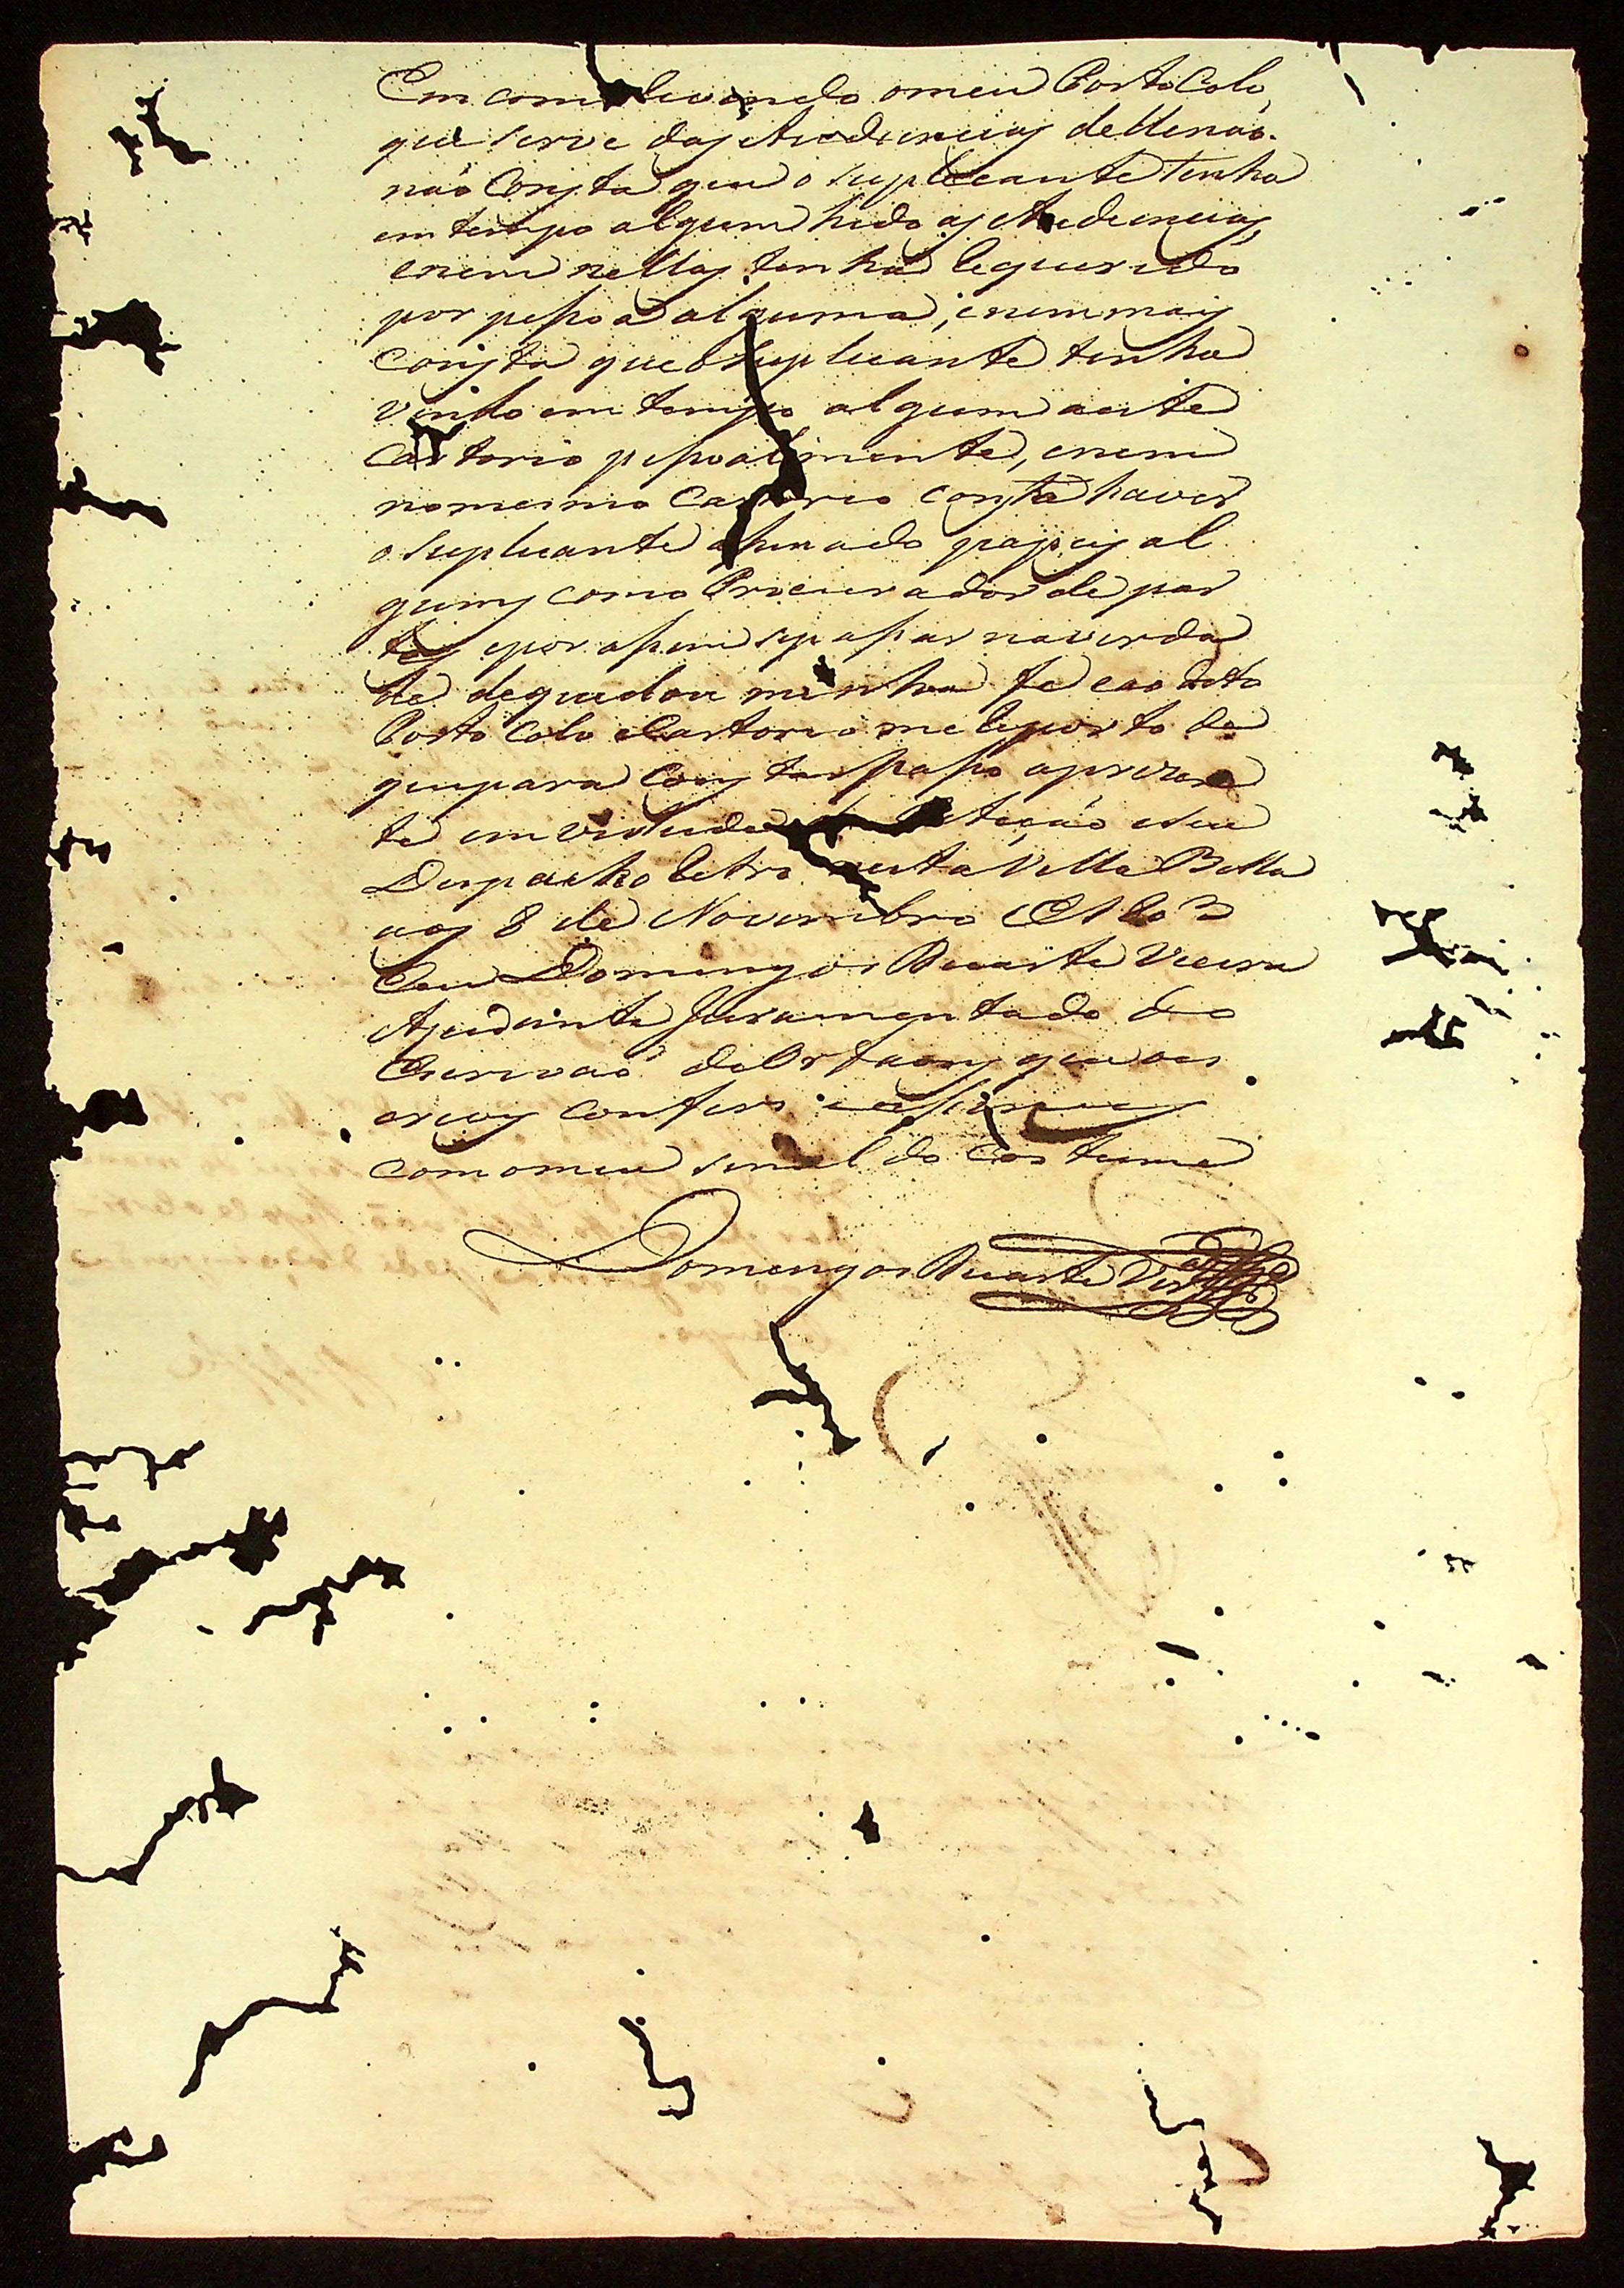 Em como levendo omeu Porto Colo,
que serve das Audiencias delle náo
náo Consta que o suplecante tenha
em tempo algum hido as Audiencias,
enem nellas tenha Requerido
por pessoa alguma, enem mais
Consta que o Suplicante tenha
vindo em tempo algum a este
Cartorio pesoalmente, enem
nomesmo Cartorio consta haver
o Suplicante asinado papeis al
guns como Procurador de par
tes epor asim sepasar naverda
de dequedou minha fe e ao dito
Porto Colo e Cartorio me Reporto do
quepara Constar paso aprezen
te em virtude da Petiçáo e seu
Despacho Retro nesta Villa Bella
aos 8 de Novembro
Eu Domingos Duarte Vieira
Ajudante Juramentado do
Escriváo dos Orfaons que o es
crevy confery easiney
com omeu sinal do Costume
Domingos Duarte Vieira